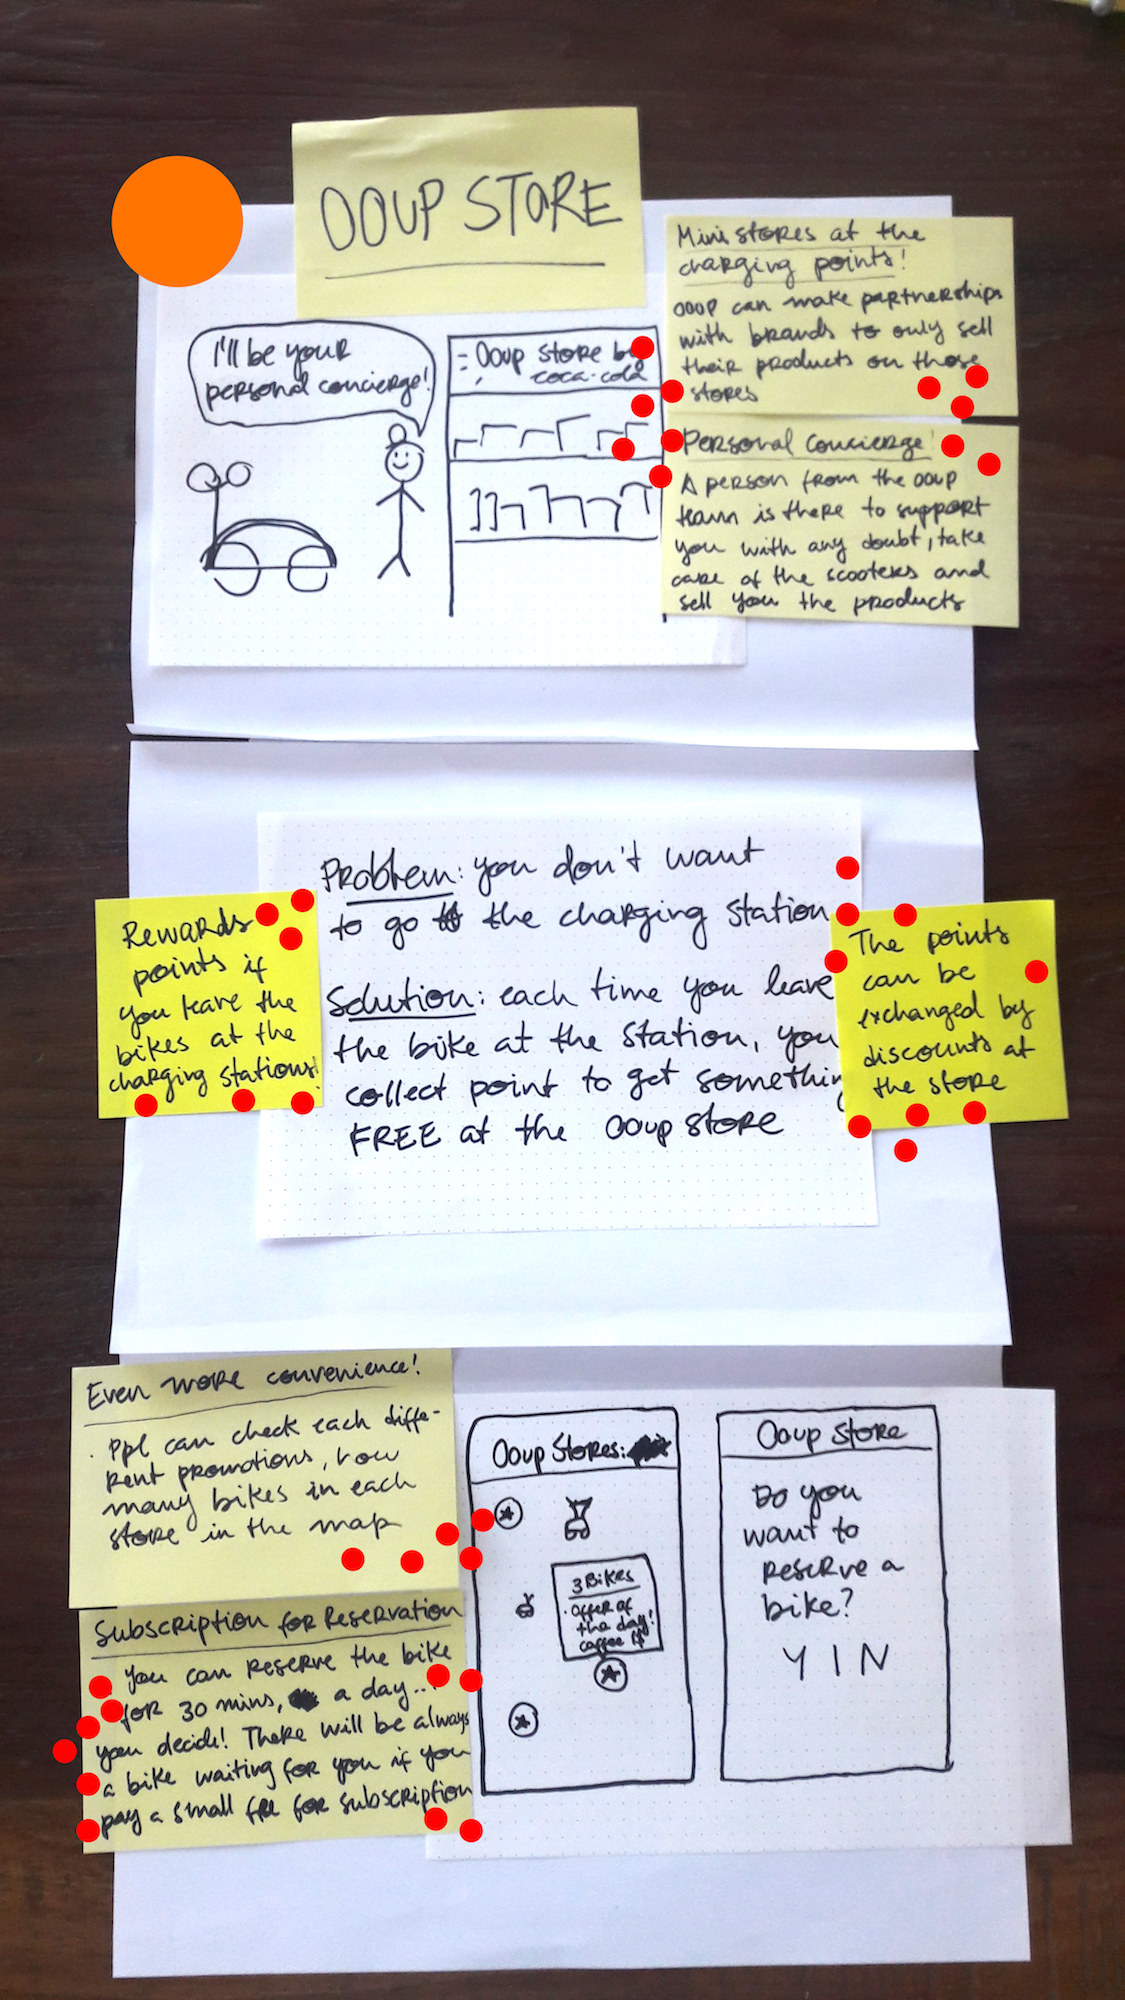 OOUP STORE
I'll be your
personal concierge!
Ooup store by
coca-cola
Mini stores at the
charging points!
OOUP can make partnerships
with brands to only sell
their products on those
stores
Personal Concierge!
A person from the OOUP
team is there to support
you with any doubt, take
care of the scooters and
sell you the products
Problem: you don't want
to go to the charging station
Solution: each time you leave
the bike at the station, you
collect point to get something
FREE at the Ooup store
Rewards
points if
you leave the
bikes at the
charging stations!
The points
can be
exchanged by
discounts at
the store
Even more convenience!
. Ppl can check each diffe-
rent promotions, how
many bikes in each
store in the map
Subscription for Reservation
You can reserve the bike
for 30 mins, a day...
you decide! There will be always
a bike waiting for you if you
pay a small fee for subscription
Ooup Stores:
3 Bikes
. offer of
the day!
coffee 1$
Ooup Store
Do you
want to
reserve a
bike?
Y I N